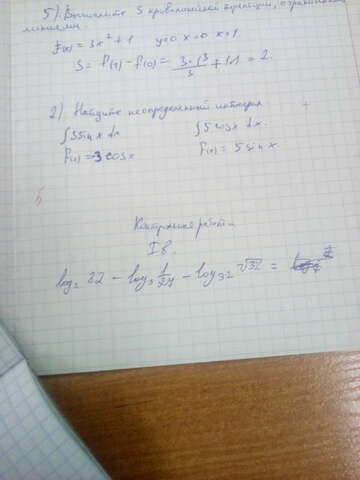 5). Вычислите S криволинейной трапеции, ограниченной
линиями.
F(x) = 3x² + 1 y=0 x=0 x=1
S = F(1) - F(0) = 3·1³/3 + 1·1 = 2.
2) Найдите неопределенный интеграл
∫3sin x dx ∫5 cosx dx.
F(x) = 3 cosx F(x) = 5 sin x.
5
Контрольная работа
I в.
log₂ 32 - log₃ 1/27 - log₃₂ √32 =